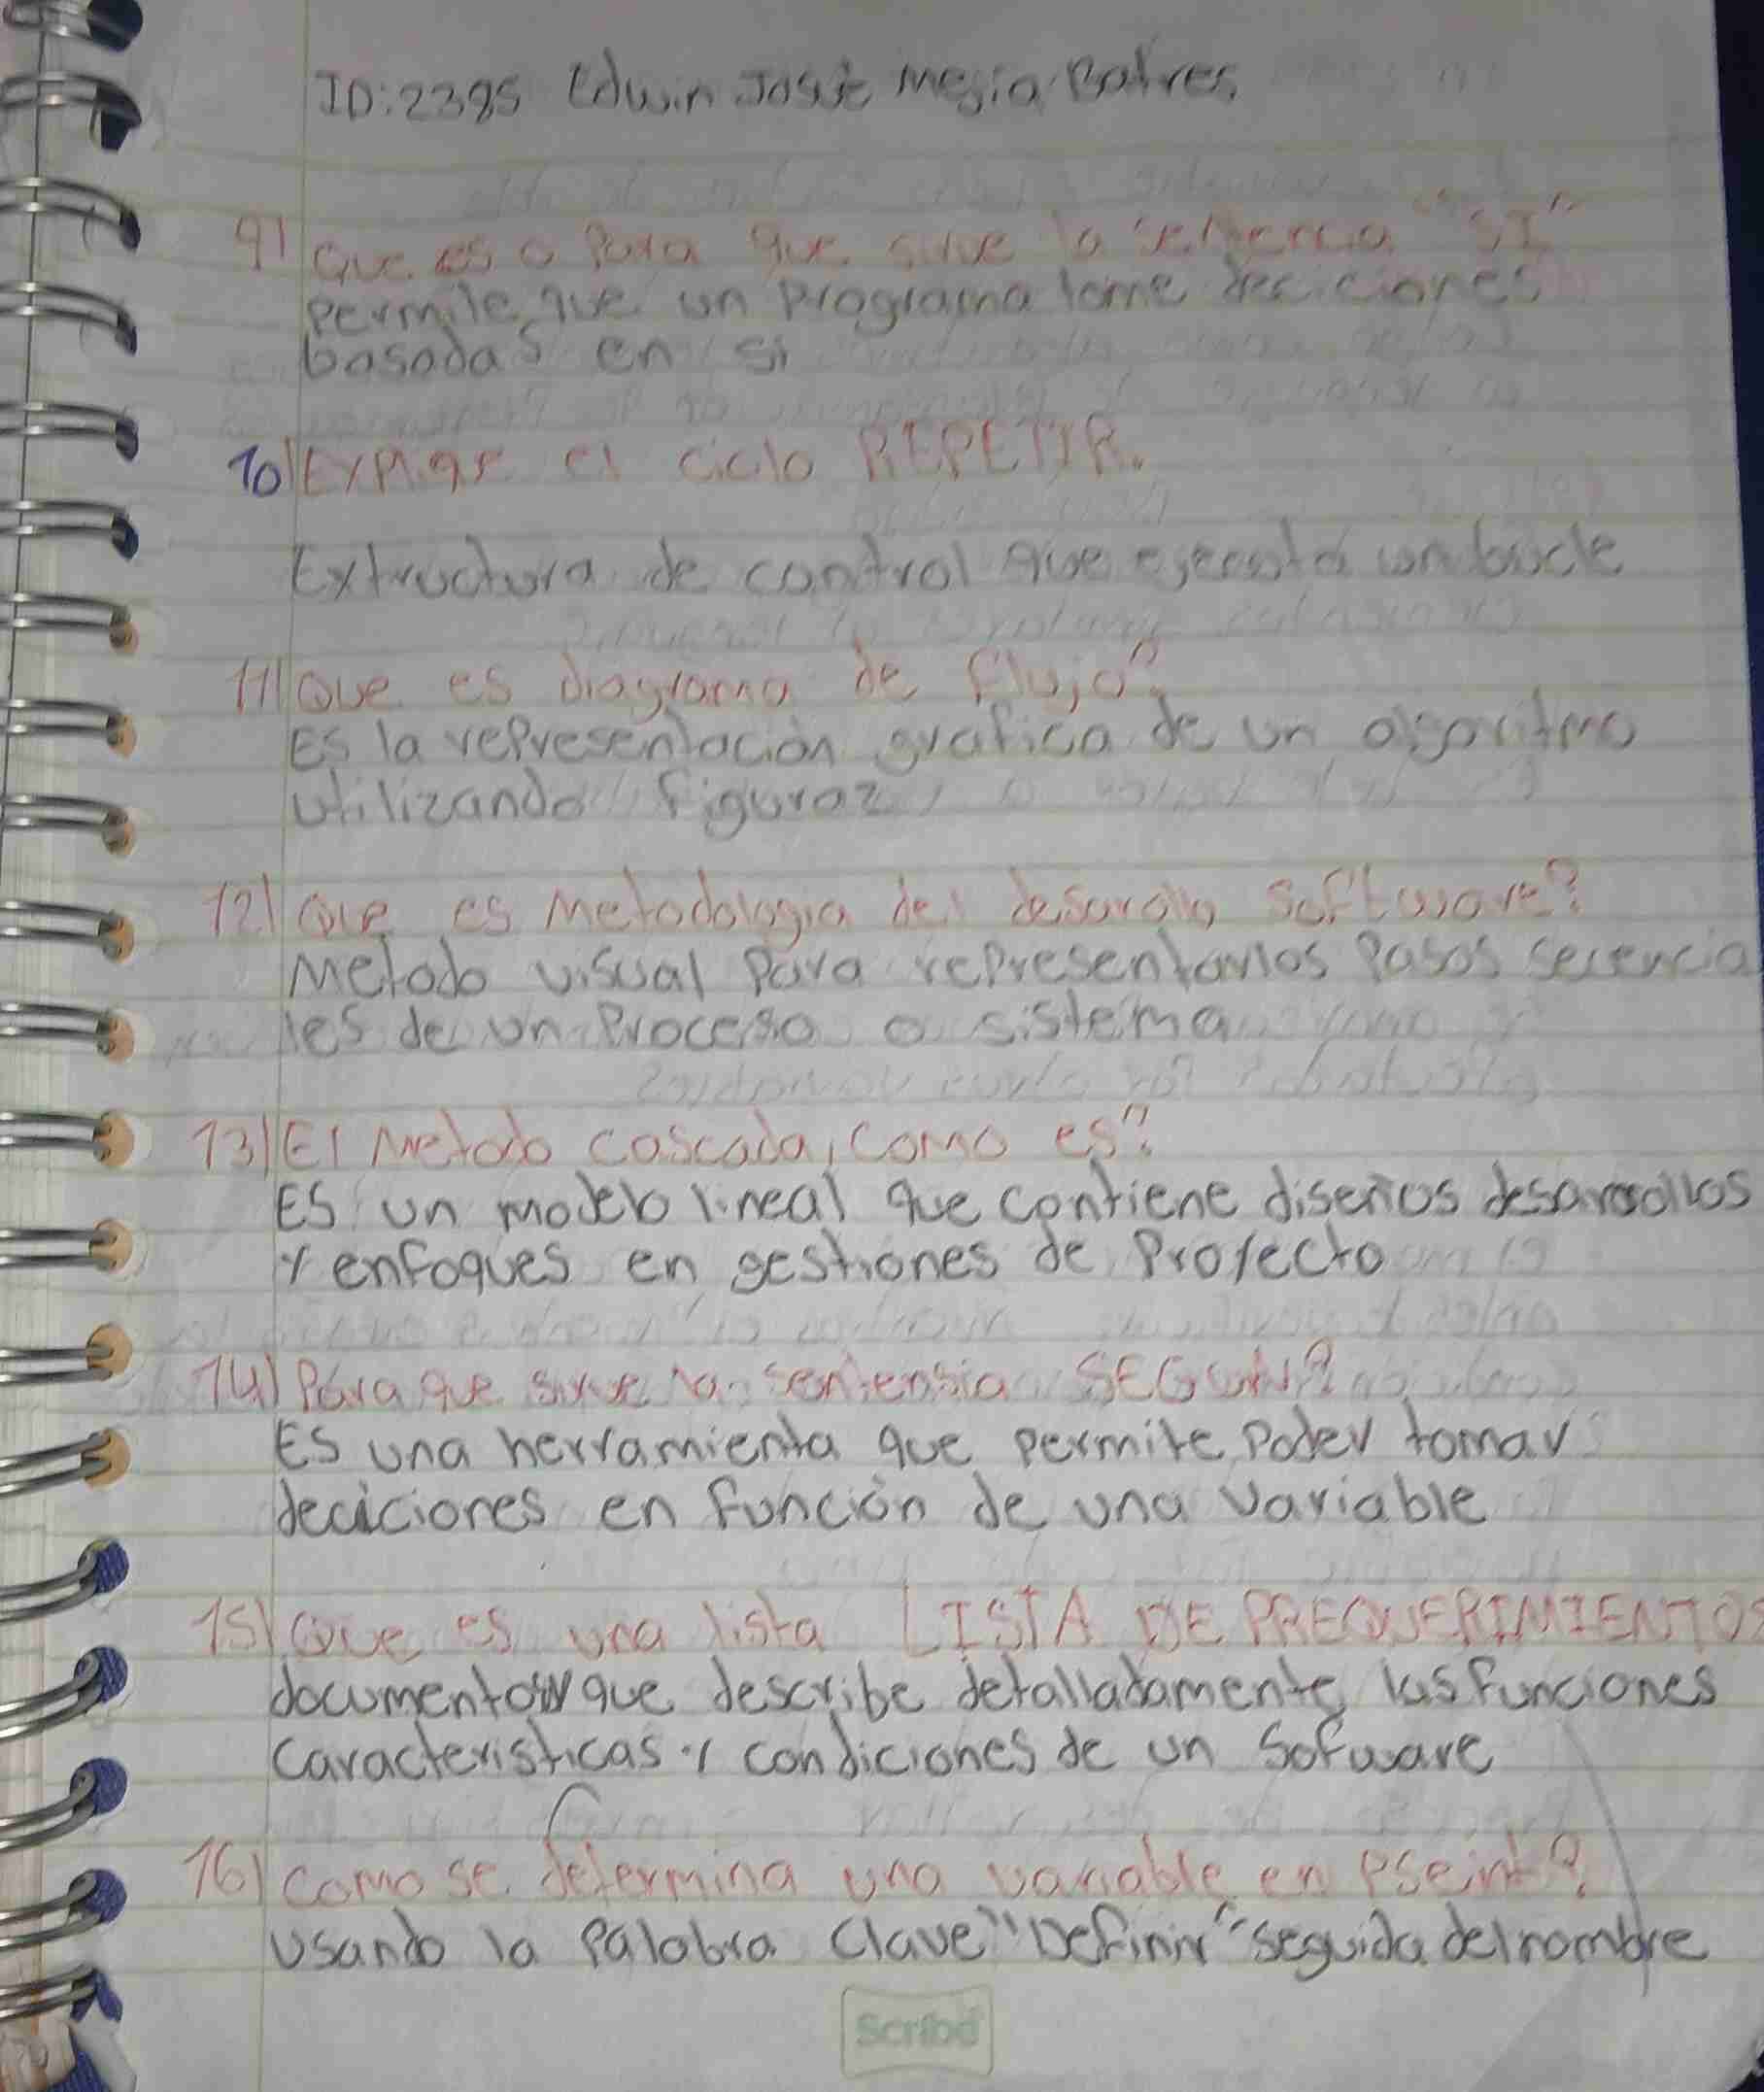 ID:2385 Edwin Josue Mejia Batres
9) Que es o Para que sirve la sentencia "SI"
permite que un programa tome deciciones
basadas en si
10) Explique el ciclo REPETIR.
Extructura de control que ejecuta un bucle
11) Que es diagrama de flujo?
Es la representación grafica de un algoritmo
utilizando figuraz
12) Que es Metodologia del desarollo Software?
Metodo visual Para representarlos Pasos secencia
les de un Proceso o sistema
13) El Metodo cascada, como es?
ES un modelo lineal que contiene diseños desarrollos
y enfoques en gestiones de Proyecto
14) Para que sirve la sentensia SEGUN?
Es una herramienta que permite Poder tomar
deciciones en función de una variable
15) Que es una lista LISTA DE PREQUERIMIENTOS
documento que describe detalladamente las funciones
caracteristicas y condiciones de un Sofware
16) como se determina una variable en PSeint?
Usando la Palabra Clave "Definir" seguida del nombre
Scribe